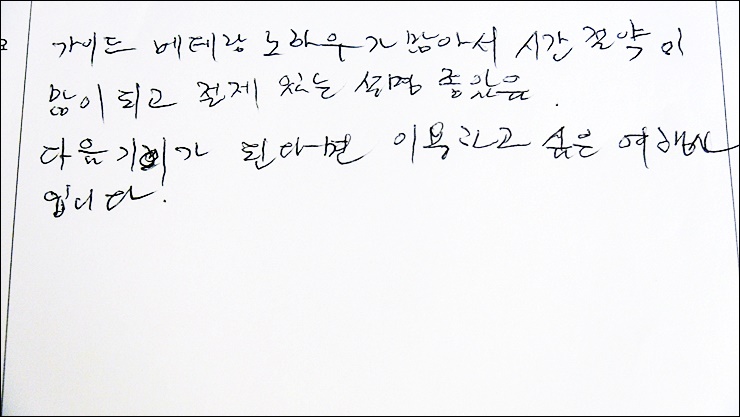 가이드 베테랑 노하우가 많아서 시간 절약이
많이 되고 절제 있는 설명 좋았음.
다음 기회가 된다면 이용하고 싶은 여행사
입니다.